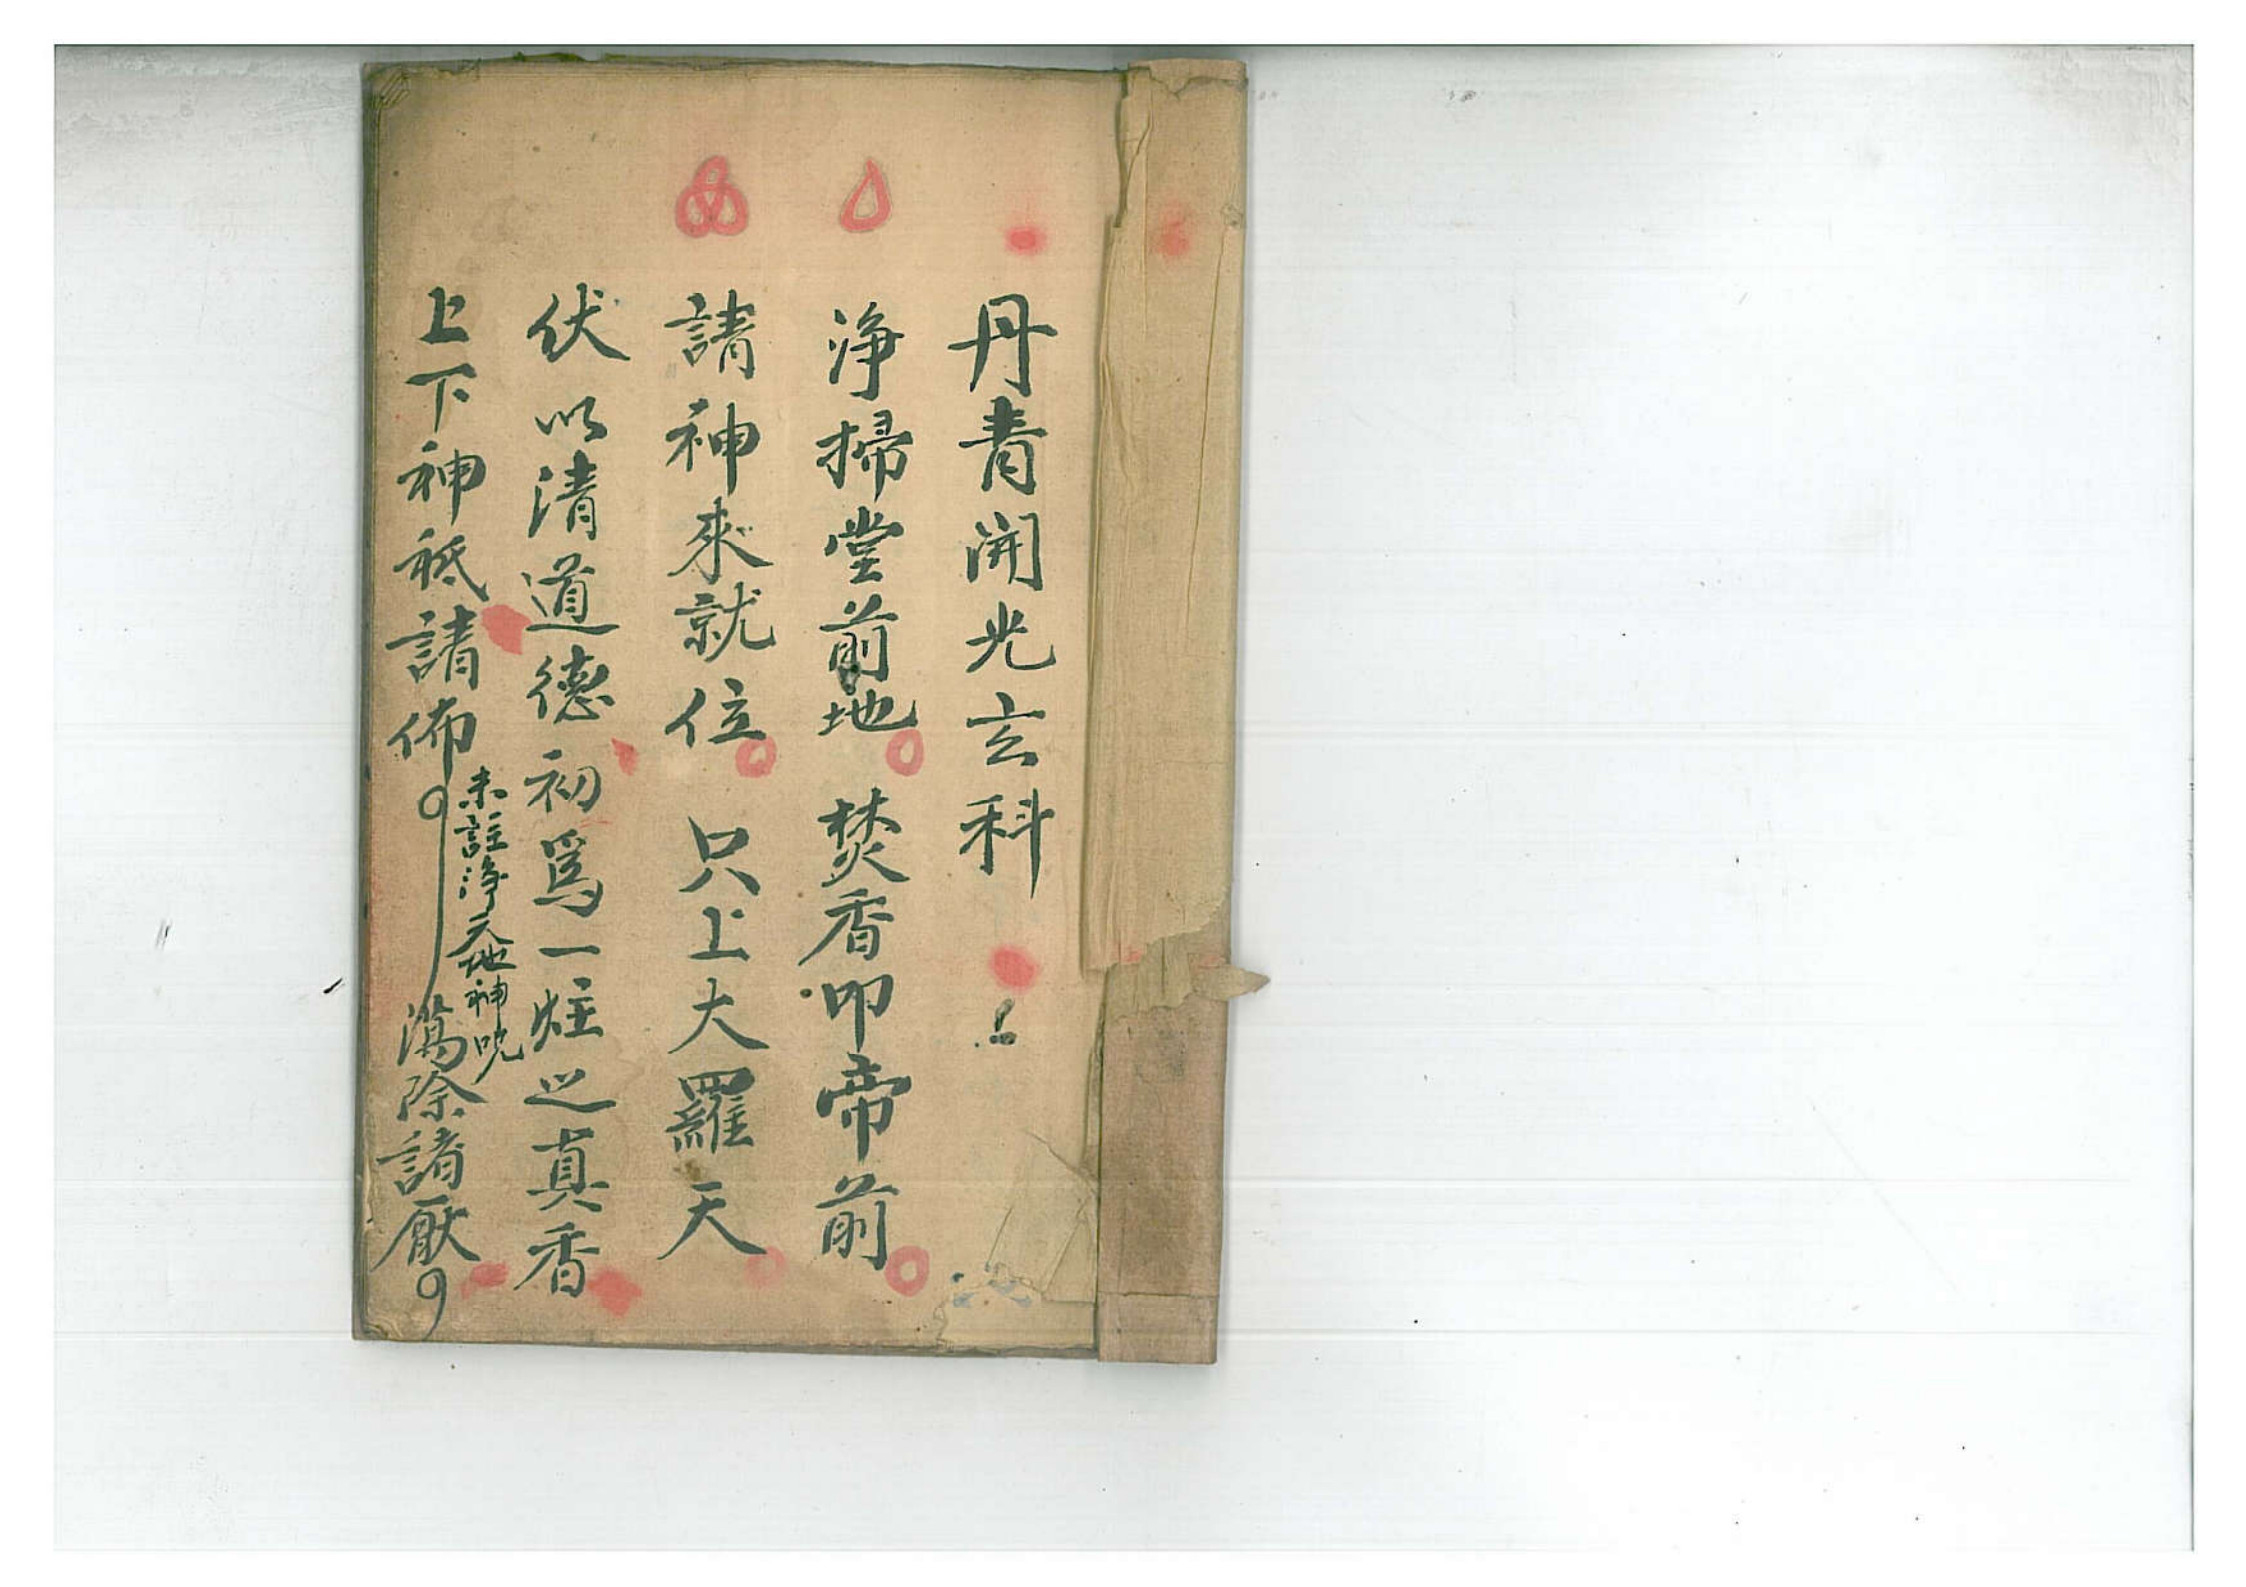 丹青開光玄科
淨掃堂前地 焚香叩帝前
請神來就位 只上大羅天
伏以清道德初爲一炷之真香
上下神祗請佈 蕩除諸厭
未註淨天地神呪